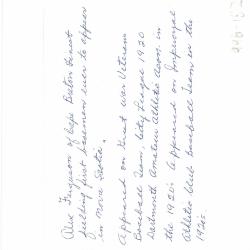 Alex Ferguson of Cape Breton finest
fielding first baseman ever to appear
in Nova Scotia.
Appeared on Great War Veterans
Baseball Team, City League 1920
Dartmouth Amateur Athletic Assn. in
the 1920s Appeared on Imperoyal
Athletic Club Baseball Team in the
1920s